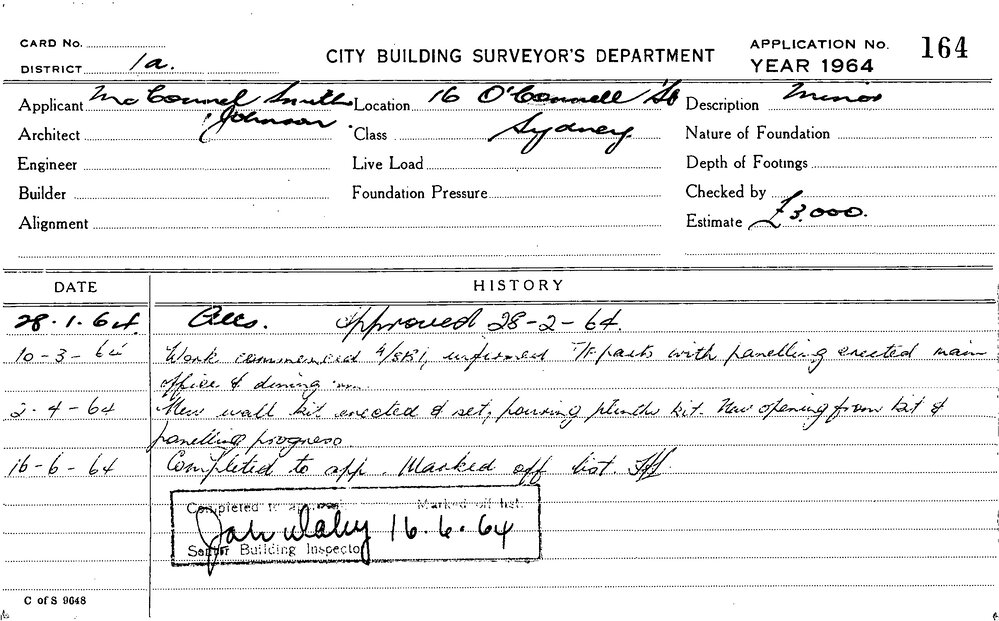 CARD No.
DISTRICT 1a.
CITY BUILDING SURVEYOR'S DEPARTMENT
APPLICATION No. 164
YEAR 1964
Applicant McConnel Smith Location 16 O'Connell St Description Minor
Architect Johnson Class Sydney Nature of Foundation
Engineer Live Load Depth of Footings
Builder Foundation Pressure Checked by
Alignment Estimate £3.000.
DATE HISTORY
28.1.64. Approved 28-2-64.
10-3-64 Work commenced informed parts with panelling erected main
office & dining rm.
2.4-64 New wall kit erected & set, pouring plinth kit. New opening from kit &
panelling progress.
16-6-64 Completed to app. Marked off list
Completed to approval Marked off list.
16.6.64
Senior Building Inspector
C of S 9648